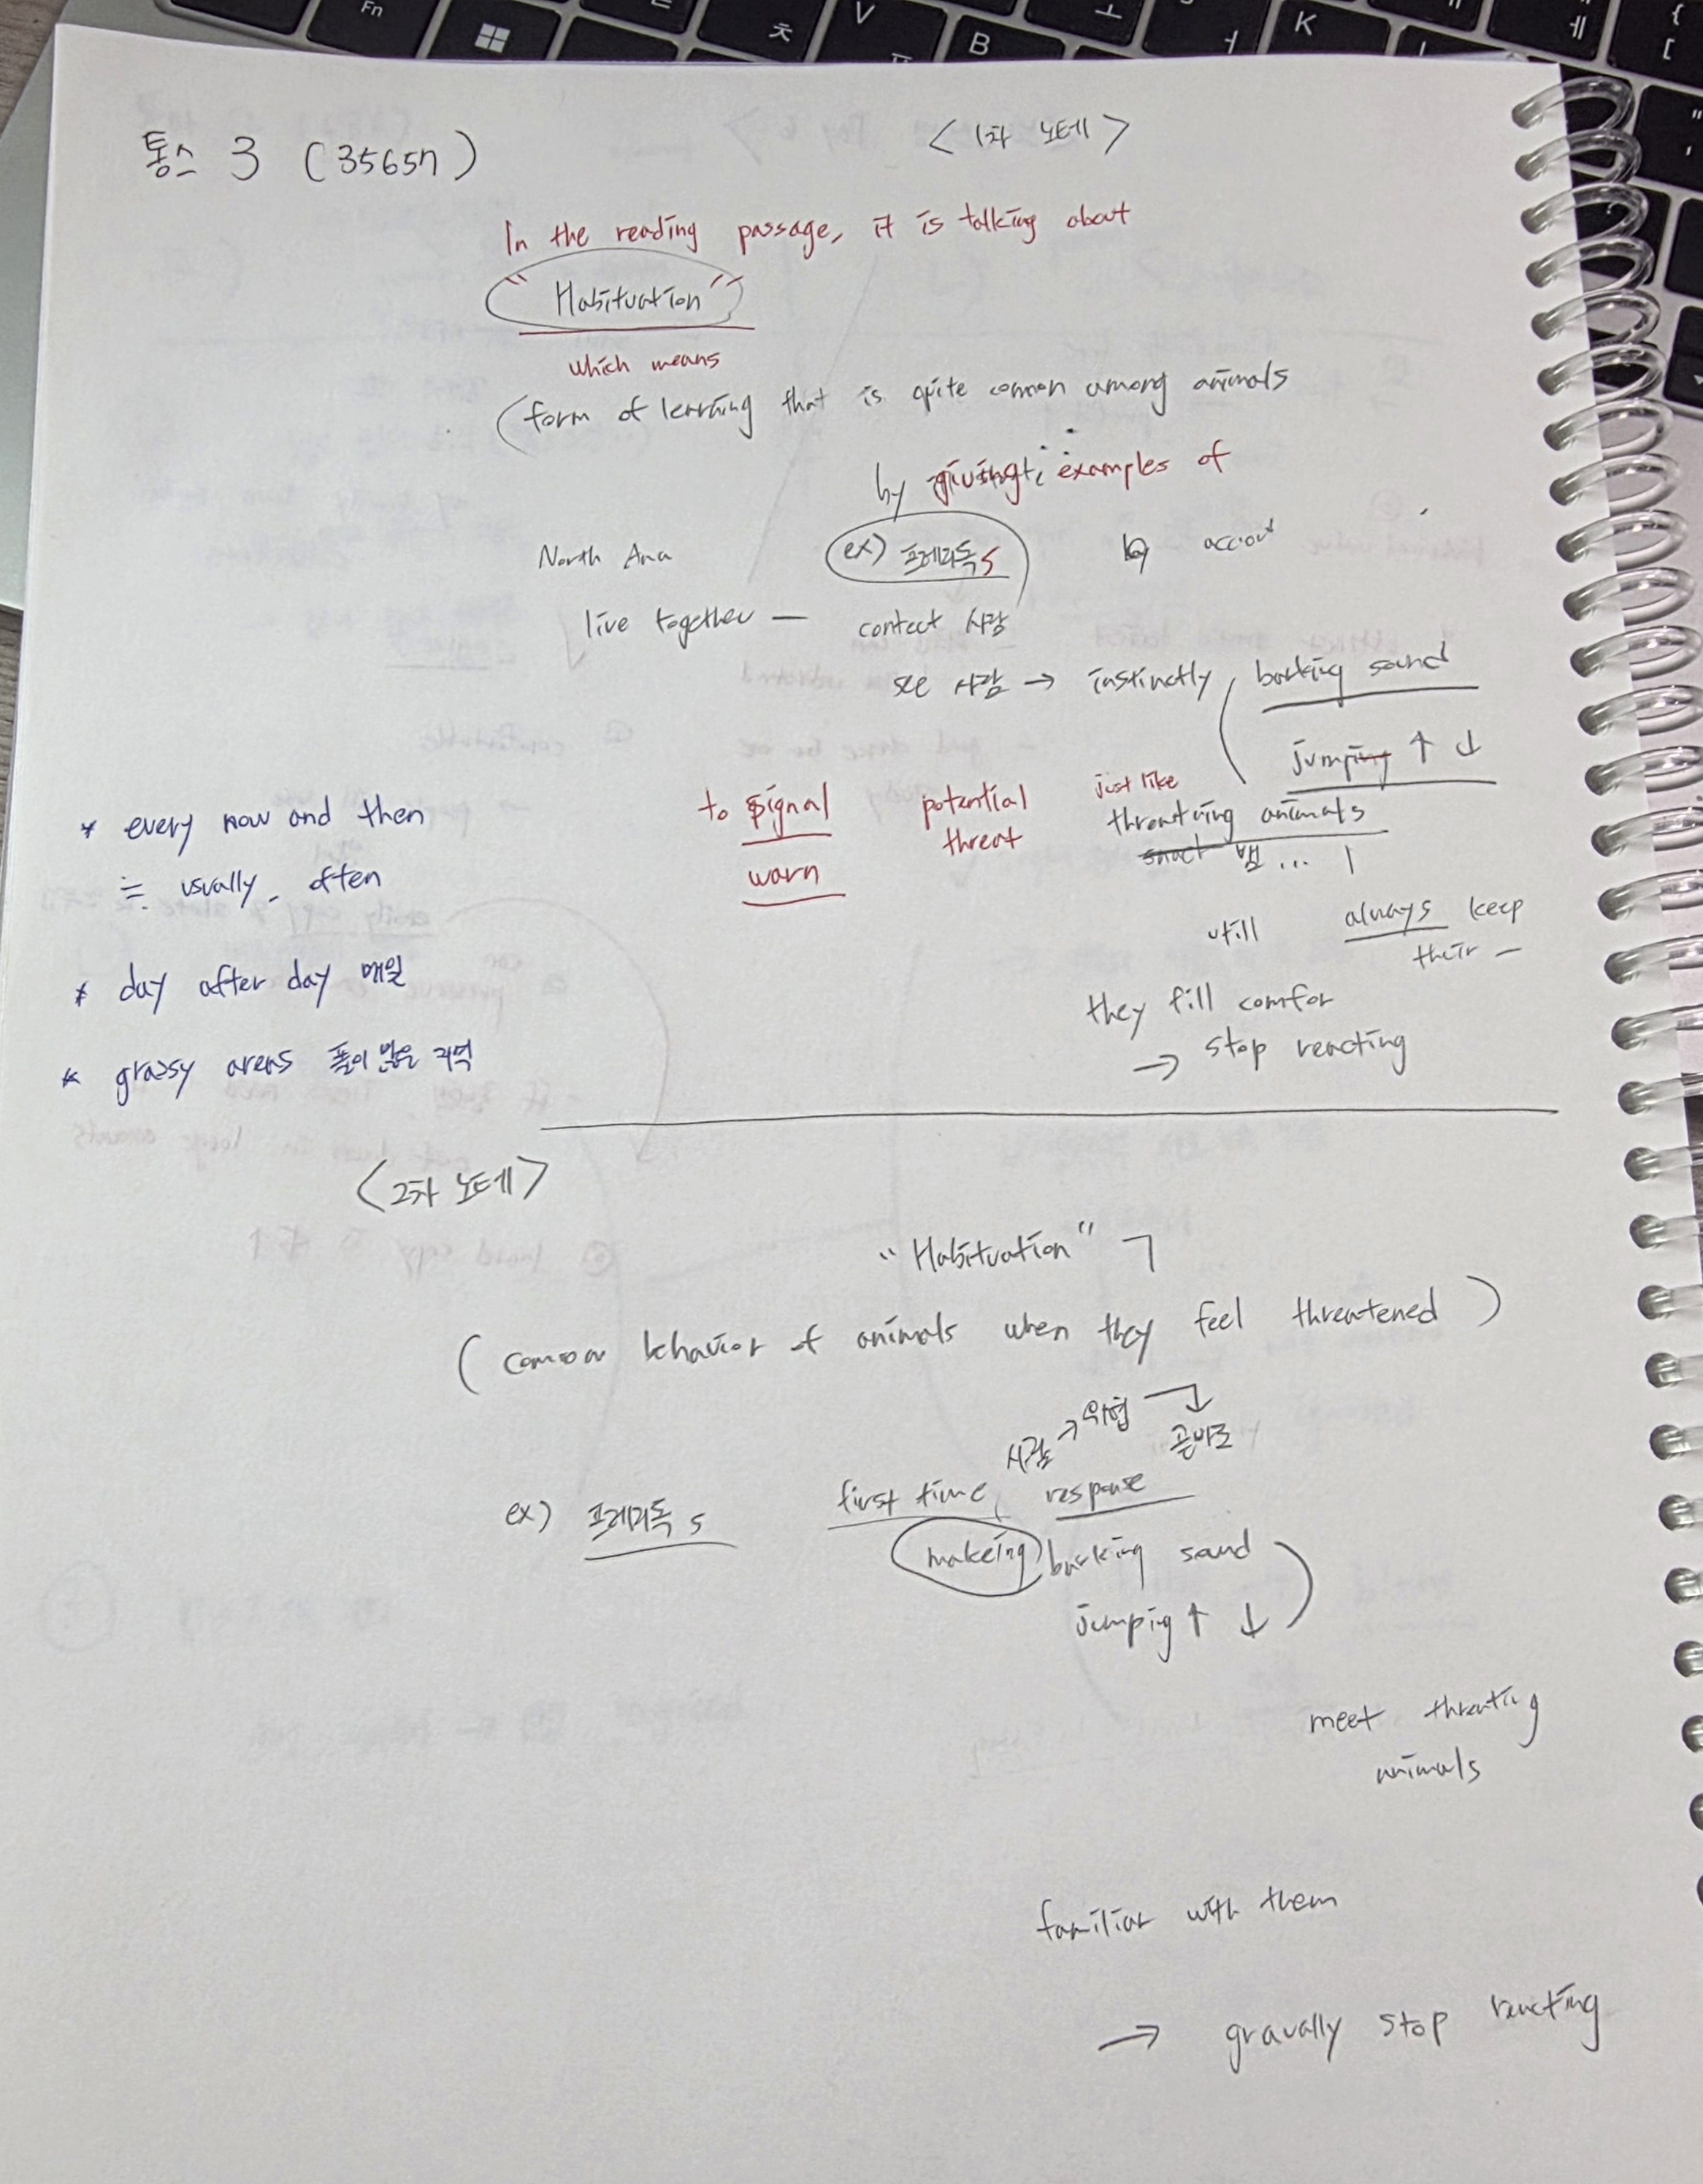 통스 3 (35657)
<1차 노테>
In the reading passage, it is talking about
"Habituation"
which means
(form of learning that is quite common among animals
by giving examples of
North Ama
ex) 프레리독s
by
live together — contact 사람
see 사람 → instinctly
barking sound
jumping ↑ ↓
to signal
warn
potential
threat
just like
threatning animals
뱀 ...
utill always keep
their —
they fill comfor
→ stop reacting
* every now and then
≒ usually, often
* day after day 매일
* grassy areas 풀이 많은 지역
<2차 노테>
"Habituation" ㄱ
(common behavior of animals when they feel threatened)
사람 → 위협
곧바로
ex) 프레리독 s first time, response
makeing barking sound
jumpig ↑ ↓
meet threating
animals
familiar with them
→ gravally stop reacting